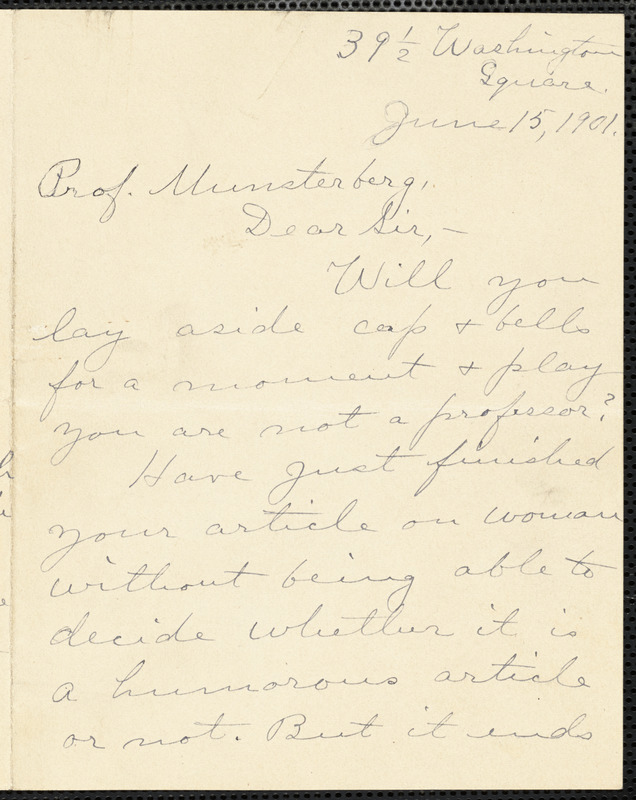 39 1/2 Washington
Square.
June 15, 1901.
Prof. Munsterberg,
Dear Sir,—
Will you
lay aside cap & bells
for a moment & play
you are not a professor?
Have just finished
your article on woman
without being able to
decide whether it is
a humorous article
or not. But it ends